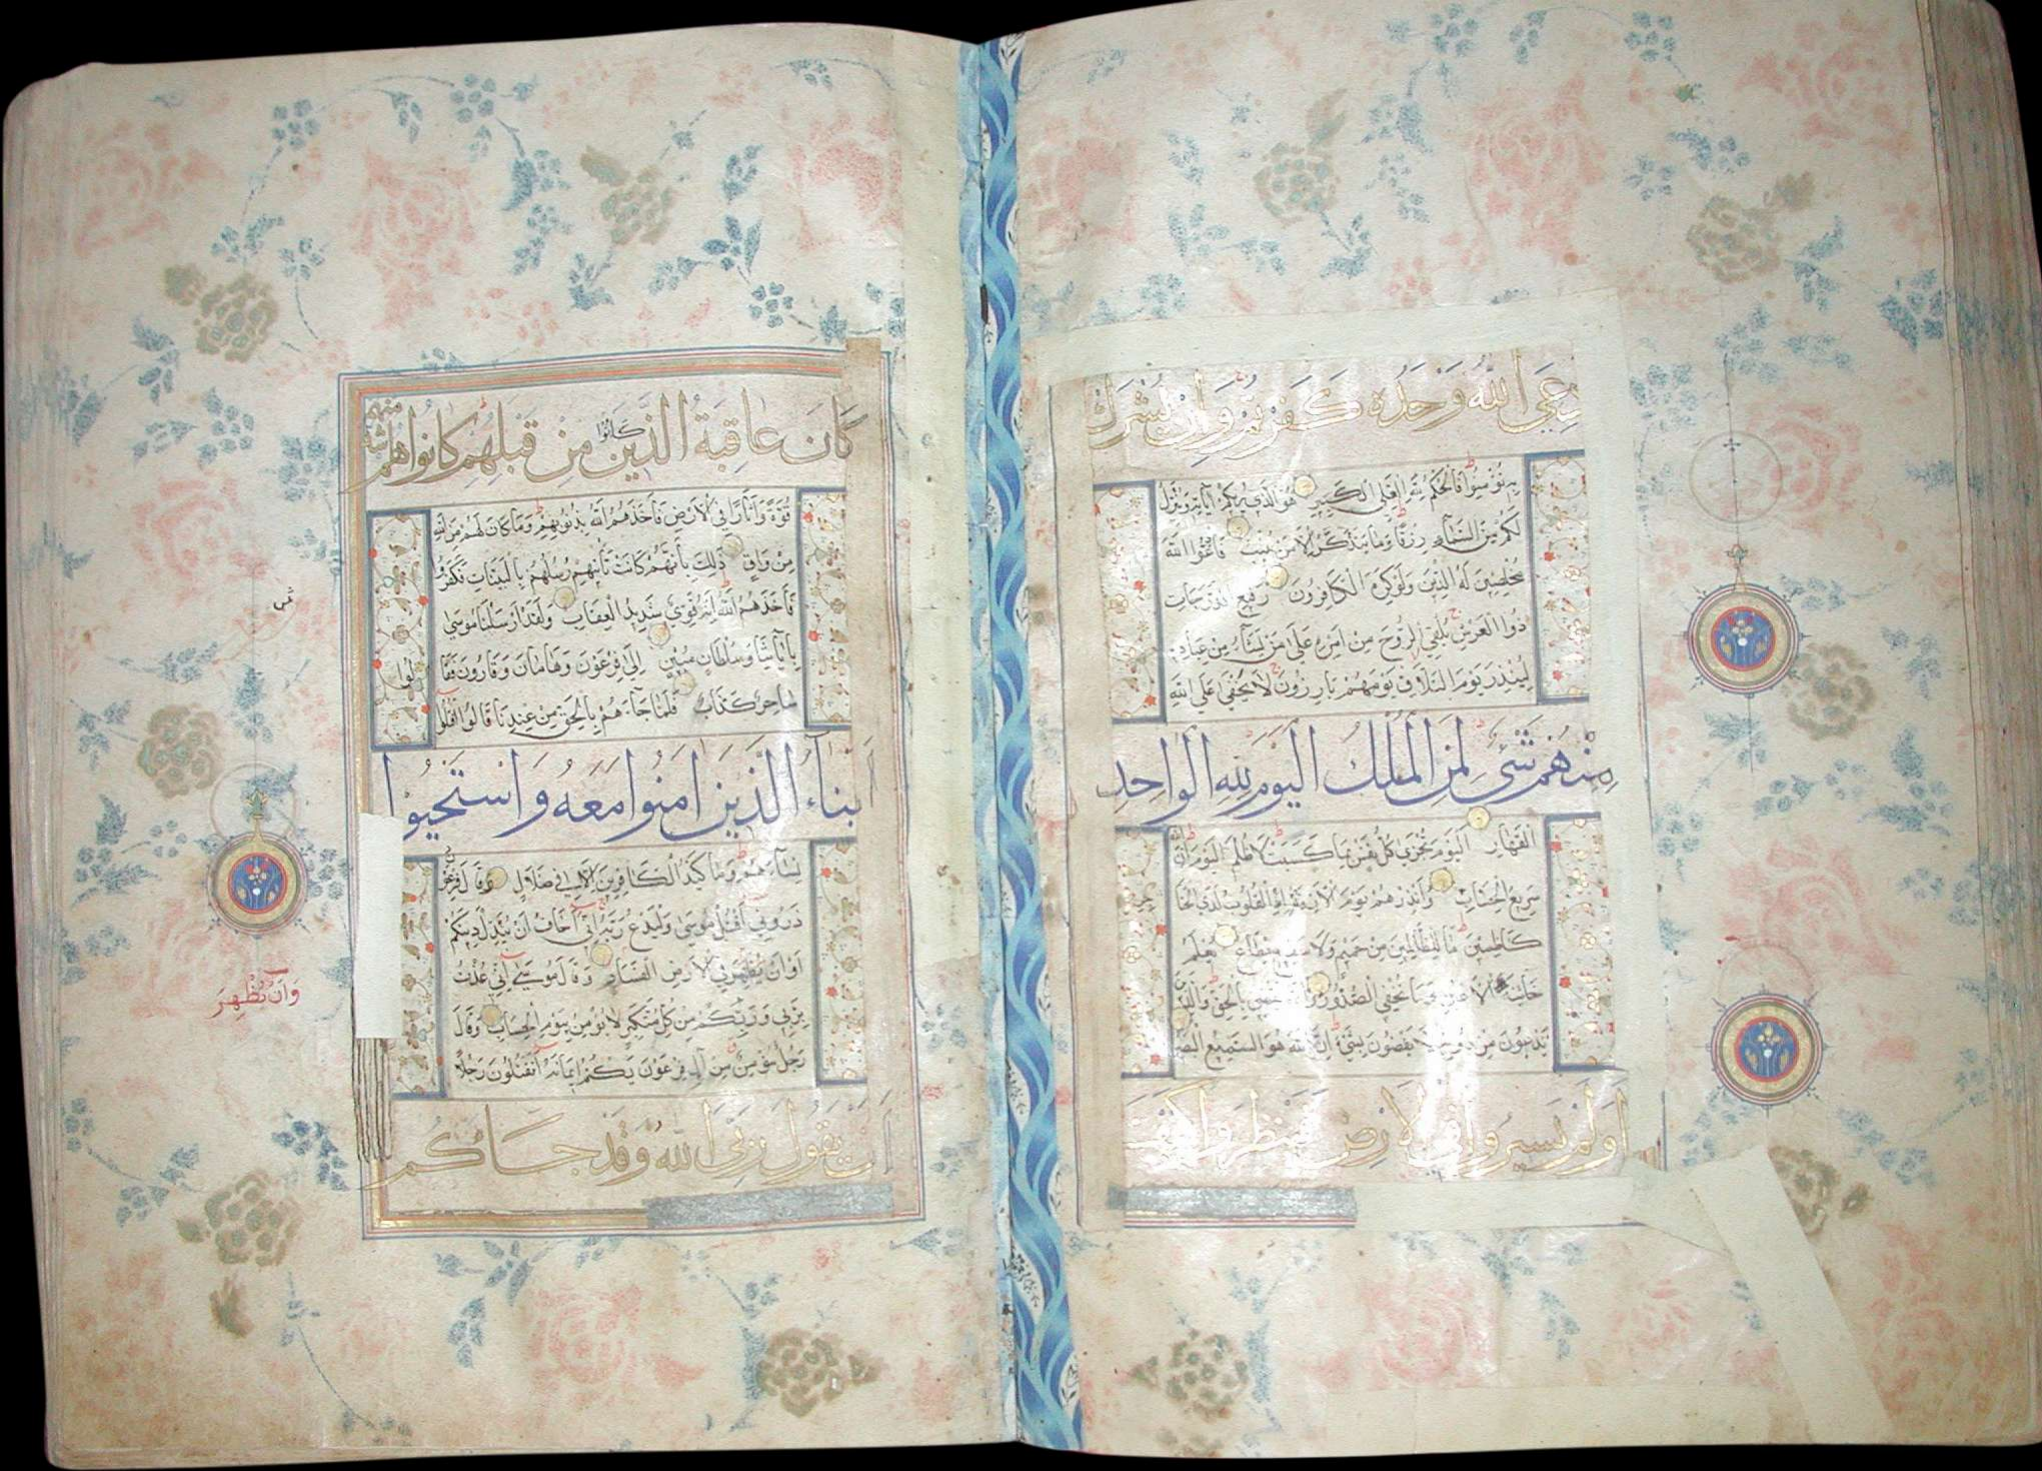 دعي الله وحده كفرتم وان يشرك
به تؤمنوا فالحكم لله العلي الكبير هو الذي يريكم آياته وينزل
لكم من السماء رزقا وما يتذكر الا من ينيب فادعوا الله
مخلصين له الدين ولو كره الكافرون رفيع الدرجات
ذوا العرش يلقي الروح من امره على من يشاء من عباده
لينذر يوم التلاق يوم هم بارزون لا يخفى على الله
منهم شيء لمن الملك اليوم لله الواحد
القهار اليوم تجزى كل نفس بما كسبت لا ظلم اليوم ان الله
سريع الحساب وانذرهم يوم الآزفة اذ القلوب لدى الحنا
كاظمين ما للظالمين من حميم ولا شفيع يطاع يعلم
خائنة الاعين وما تخفي الصدور والله يقضي بالحق والذين
يدعون من دونه لا يقضون بشيء ان الله هو السميع البصير
اولم يسيروا في الارض فينظروا كيف
كان عاقبة الذين كانوا من قبلهم كانوا هم اشد منهم
قوة وآثارا في الارض فاخذهم الله بذنوبهم وما كان لهم من الله
من واق ذلك بأنهم كانت تأتيهم رسلهم بالبينات فكفروا
فأخذهم الله انه قوي شديد العقاب ولقد ارسلنا موسى
بآياتنا وسلطان مبين الى فرعون وهامان وقارون فقالوا
ساحر كذاب فلما جاءهم بالحق من عندنا قالوا اقتلوا
ابناء الذين امنوا معه واستحيوا
نساءهم وما كيد الكافرين الا في ضلال وقال فرعون
ذروني اقتل موسى وليدع ربه اني اخاف ان يبدل دينكم
او ان يظهر في الارض الفساد وقال موسى اني عذت
بربي وربكم من كل متكبر لا يؤمن بيوم الحساب وقال
رجل مؤمن من آل فرعون يكتم ايمانه اتقتلون رجلا
ان يقول ربي الله وقد جاءكم
ثمن
وان يظهر